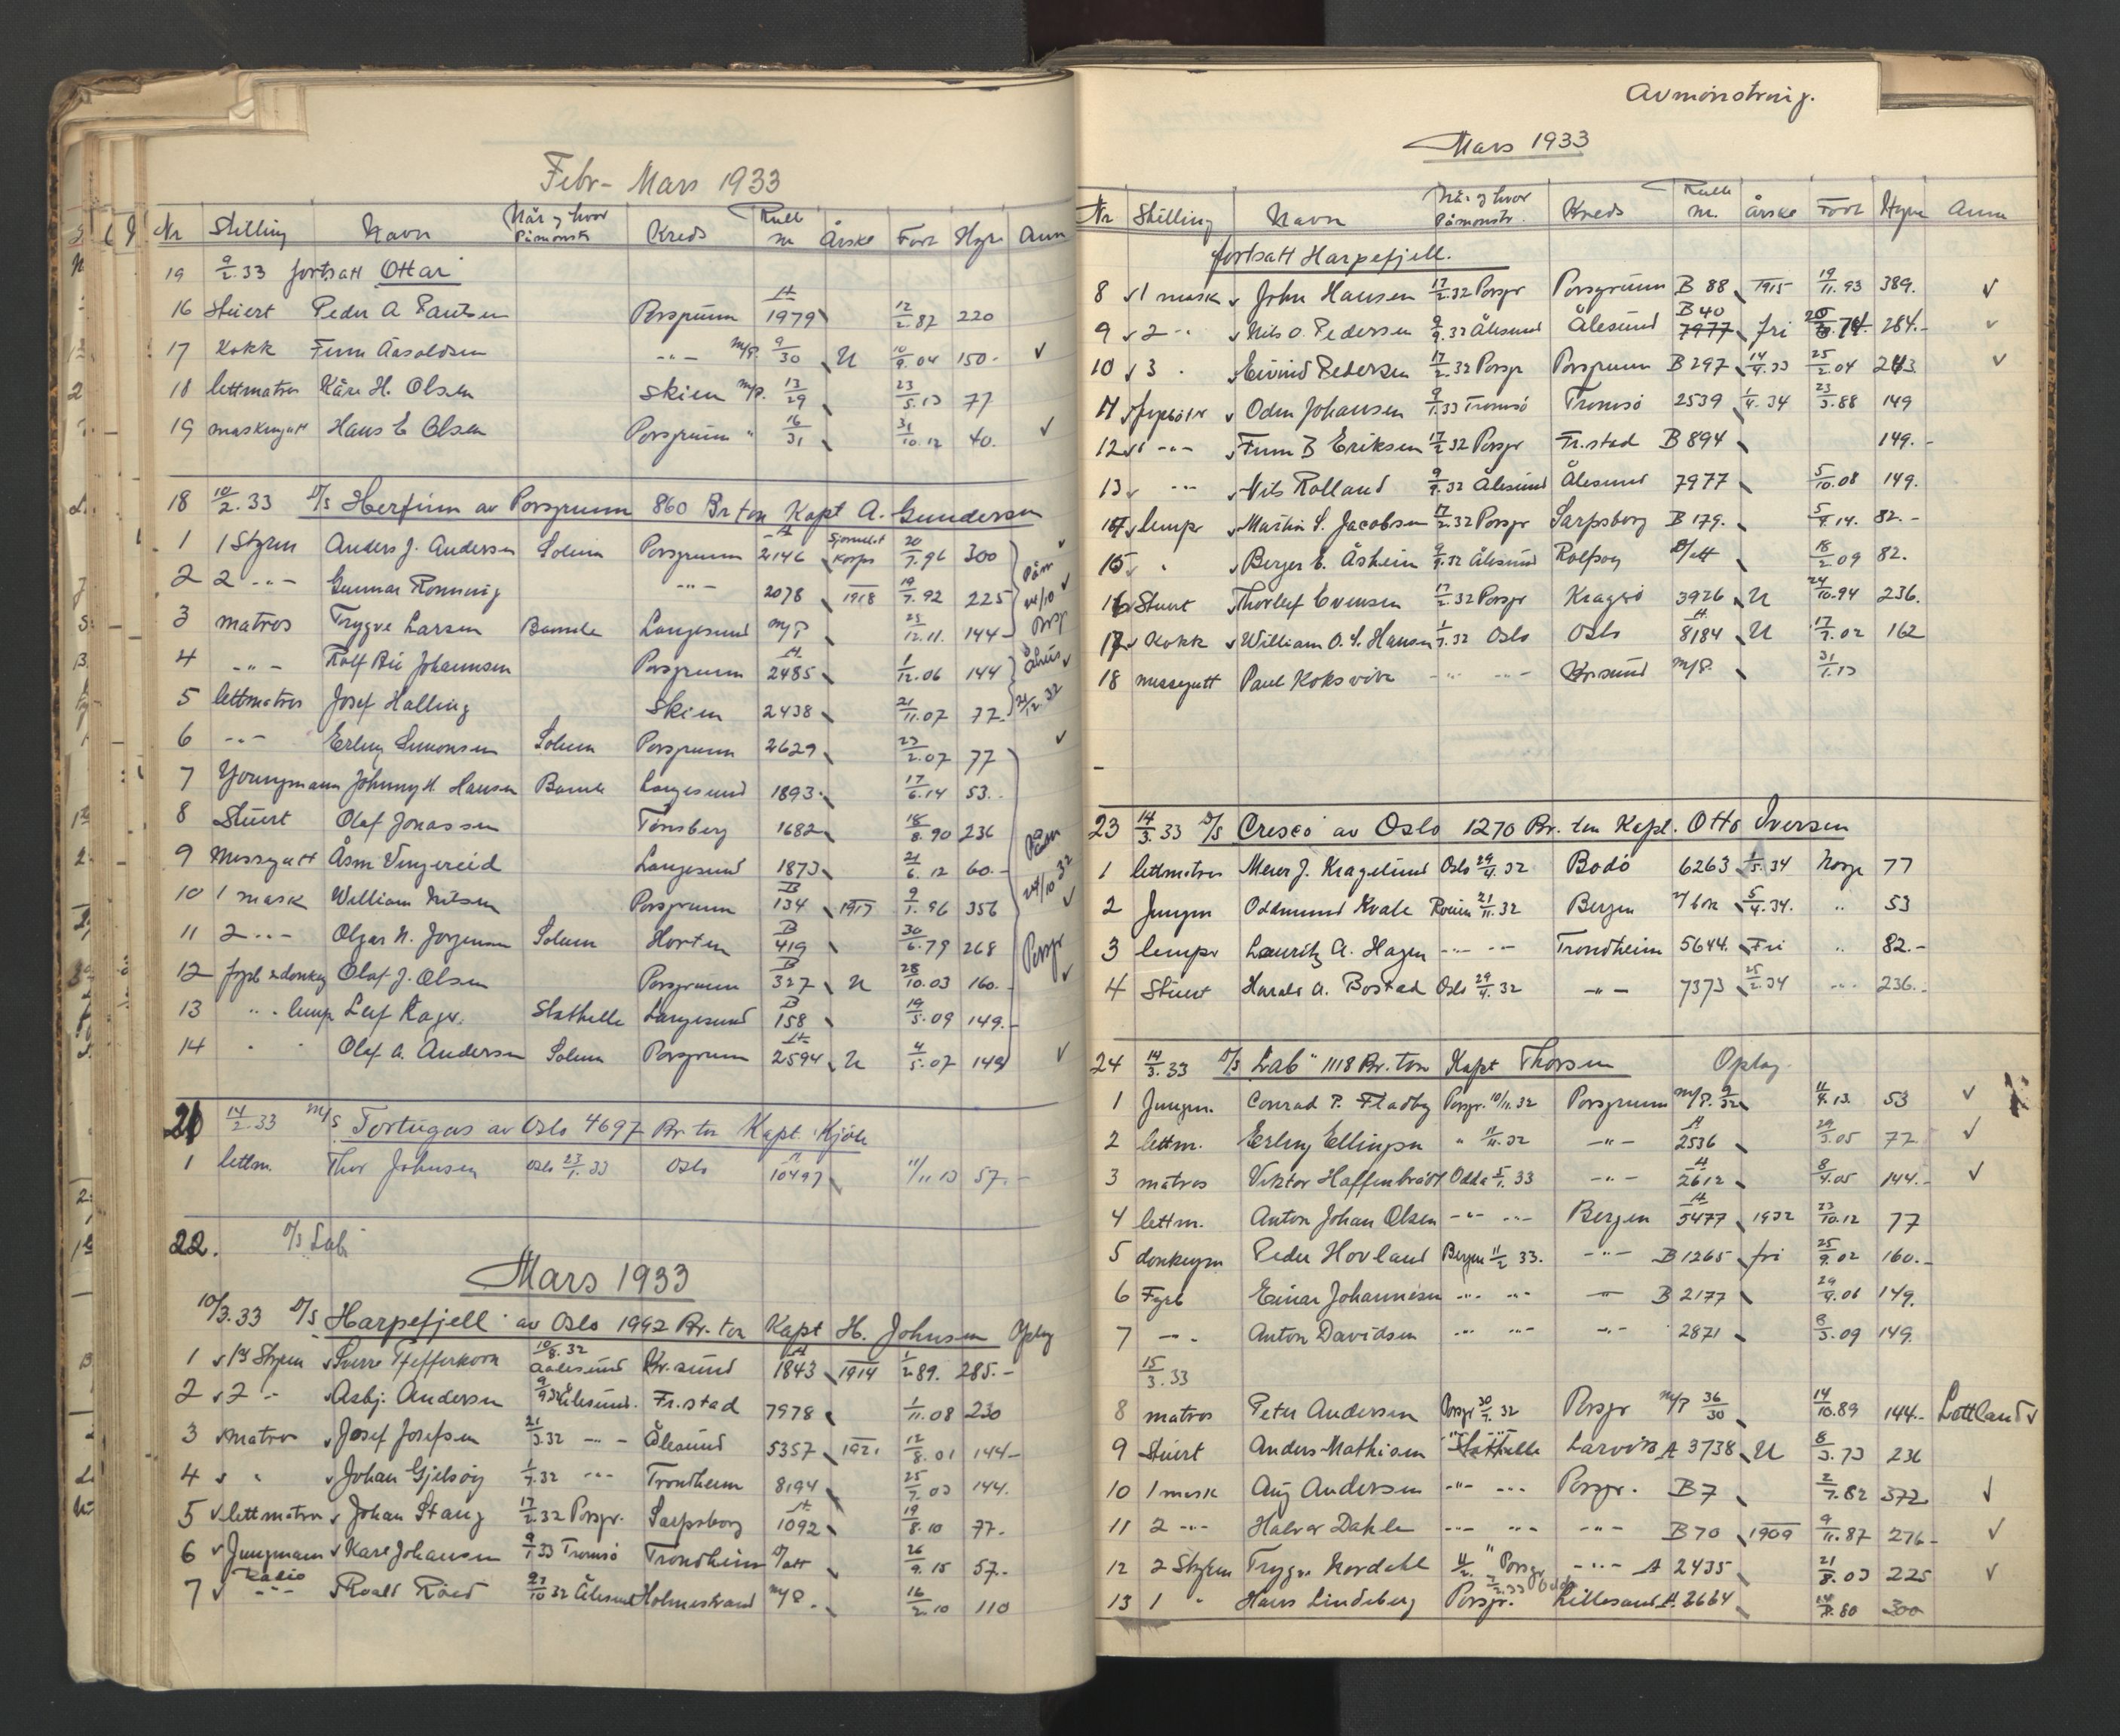 Febr - Mars 1933
Nr Stilling Navn Når og hvor påmönstr Kreds Rull nr Årskl Født Hyre Anm
19 9/2.33 fortsatt Ottar
16 Stuert Peder A Paulsen Porsgrunn A 1979 12/2.87 220
17 Kokk Finn Aasoldsen -"- m/P. 9/30 U 10/9.04 150.- ✓
18 lettmatros Kåre H. Olsen Skien m/P. 13/29 23/5.13 77
19 maskingutt Hans E Olsen Porsgrunn " 16/31 31/10.12 40. ✓
18 10/2.33 D/S Herfinn av Porsgrunn 860 Br ton Kapt A. Gundersen
1 1 Styrm Anders J. Andersen Solum Porsgrunn A 2146 Sjömilit Korps 20/7.96 300 ✓
2 2 -"- Gunnar Rönning -"- 2078 1918 19/7.92 225 Påm 24/10 Prsgr ✓
3 matros Trygve Larsen Bamble Langesund m/P 23/12.11. 144-
4 -"- Rolf Bie Johannsen Porsgrunn A 2485 1/12.06 144 Åhus ✓
5 lettmatros Josef Halling Skien 2438 21/11.07 77. 21/12.32
6 -"- Erling Simonsen Solum Porsgrunn 2629 23/2.07 77 ✓
7 Youngmann Johnny H. Hansen Bamble Langesund 1893 17/6.14 53.-
8 Stuert Olaf Jonassen Tønsberg 1682 18/8.90 236
9 Messegutt Åsm Vingereid Langesund 1873 21/6.12 60.- Påm 24/10 32
10 1 mask William Nilsen Porsgrunn B 134 1917 9/1.96 356 ✓
11 2 -"- Olgar N. Jorgensen Solum Horten B 419 30/6.79 268 Porsgr
12 fyrb & donkey Olaf J. Olsen Porsgrunn B 327 U 28/10.03 160.- ✓
13 " - lemp Leif Kager. Stathelle Langesund B 158 19/5.09 149.-
14 " " Olaf A. Andersen Solum Porsgrunn A 2594 U 4/5.07 149 ✓
21 14/2.33 M/S Tortugas av Oslo 4697 Br. ton Kapt. Kjöle
1 lettm. Thor Johnsen Oslo 23/1.33 Oslo A 10497 11/11 13 57.-
22. D/S Lab
Mars 1933
10/3.33 D/S Harpefjell av Oslo 1992 Br. ton Kapt H. Johnsen Oplag
1 ✓ 1st Styrm ✓ Sverre Pfefferkorn 10/8.32 Aalesund Kr.sund A 1843 1914 1/2 89. 285.-
2 ✓ 2 - ✓ Asbj. Andersen 9/9 32 Ålesund. Fr.stad 7978 1/11.08 230
3 ✓ matros ✓ Josef Josefsen 21/3.32 -"- Ålesund 5357 1921 12/8.01 144-
4 ✓ " ✓ Johan Gjelsöy 1/7.32 -"- Trondheim 8194 25/7.03 144.
5 ✓ lettmatros ✓ Johan Stang 17/2.32 Porsgr. Sarpsborg A 1092 19/8.10 77.-
6 ✓ Jungmann ✓ Karl Johansen 9/1 33 Tromsö Trondheim D/att 26/9.15 57.-
7 ✓ Radio -"- ✓ Roald Röed 23/10 32 Ålesund Holmestrand m/P. 16/2.10 110
Avmönstring.
Mars 1933
Nr Stilling Navn Når og hvor Påmonstr. Kreds Rull nr. Årskl Född Hyre Anm
fortsatt Harpefjell.
8 ✓ 1 mask ✓ John Hansen 17/2.32 Porsgr Porsgrunn B 88 1915 19/11.93 389. ✓
9 ✓ 2 -"- ✓ Nils O. Pedersen 9/9.32 Ålesund Ålesund B 40 7977 fri 20/8.74 284.- ✓
10 ✓ 3 " ✓ Eivind Pedersen 17/2.32 Porsgr Porsgrunn B 297 14/4.33 25/2.04 243 ✓
11 ✓ fyrböter ✓ Odin Johansen 9/1.33 Tromsö Tromsö 2539 1/4.34 23/3.88 149
12 ✓ -"- ✓ Finn B Eriksen 17/2 32 Porsgr Fr.stad B 894 149.-
13 ✓ -"- ✓ Nils Rolland 9/9.32 Ålesund Ålesund 7977 5/10.08 149.
14 ✓ lemper ✓ Martin S. Jacobsen 17/2.32 Porsgr Sarpsborg B 179. 5/4.14. 82.-
15 ✓ " ✓ Berger E. Åsheim 9/9.32 Ålesund Rolfsoy D/att 18/2 09 82.
16 Stuert ✓ Thorleif Evensen 17/2.32 Porsgr Kragerö 3926 U 24/10.94 236.
17 ✓ Kokk ✓ William O. S. Hansen 1/7.32 Oslo Oslo A 8184 U 17/7.02 162
18 messegutt Paul Koksvik -"- -"- Kr.sund m/P. 31/1.13
23 14/3.33 D/S Cresco av Oslo 1270 Br. ton Kapt. Otto Iversen
1 lettmatros Meier J. Kragelund Oslo 29/4.32 Bodö 6263 1/5.34 Norge 77
2 Jungm Oddmund Kvale Rouen 21/11.32 Bergen 5/4.34. " 53
3 lemper Lauritz A. Hagen -"- -"- Trondheim 5644. Fri " 82.-
4 Stuert Harald A. Bostad Oslo 29/4.32 -"- 7373 25/2.34 -"- 236.-
24 14/3.33 D/S "Lab" 1118 Br. ton Kapt Thorsen Oplag.
1 Jungm. Conrad P. Fladby Porsgr. 10/11.32 Porsgrunn m/P. 9/32 11/4.13. 53 ✓
2 lettm. Erling Ellingsen " 11/11.32 -"- A 2536 29/3.05 77 ✓
3 matros Viktor Haffenbrädl Odda 5/1.33 -"- A 2612 8/4.05 144.- ✓
4 lettm. Anton Johan Olsen -"- -"- Bergen A 5477 1932 23/10.12 77
5 donkeym Peder Hovland Bergen 11/2 33. -"- B 1265 fri 25/9.02 160.-
6 Fyrb Einar Johannesen -"- -"- -"- B 2177 29/4.06 149.
7 -"- Anton Davidsen -"- -"- -"- 2871 8/3.09 149.
15/3.33
8 matros Peter Andersen Porsgr 30/7.32 Porsgr m/P 36/30 14/10.89 144.- Lettland ✓
9 Stuert Anders Mathisen Stathelle Larvik A 3738 U 8/3.73 236
10 1 mask Aug Andersen -"- -"- Porsgr. B 7 2/7.82 372 ✓
11 2 -"- Halvor Dahle -"- -"- -"- B 70 1909 9/11.87 276- ✓
12 2 Styrm Trygve Nordahl 11/2. " Porsgr -"- A 2435 21/8.03 225 ✓
13 1 " Hans Lindeberg Porsgr. 2/2.33 Odda Lillesand A. 2664 14/8.80 300